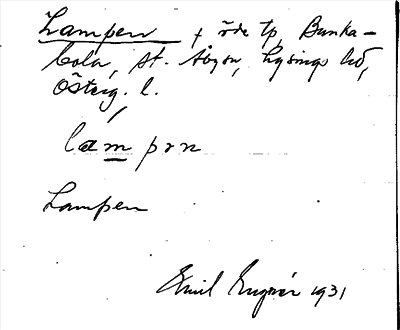 Lampen f. öde tp, Banka-
bola, st. Åbyn, Lysings hd,
Österg. l.
lampən
Lampen
Emil 1931